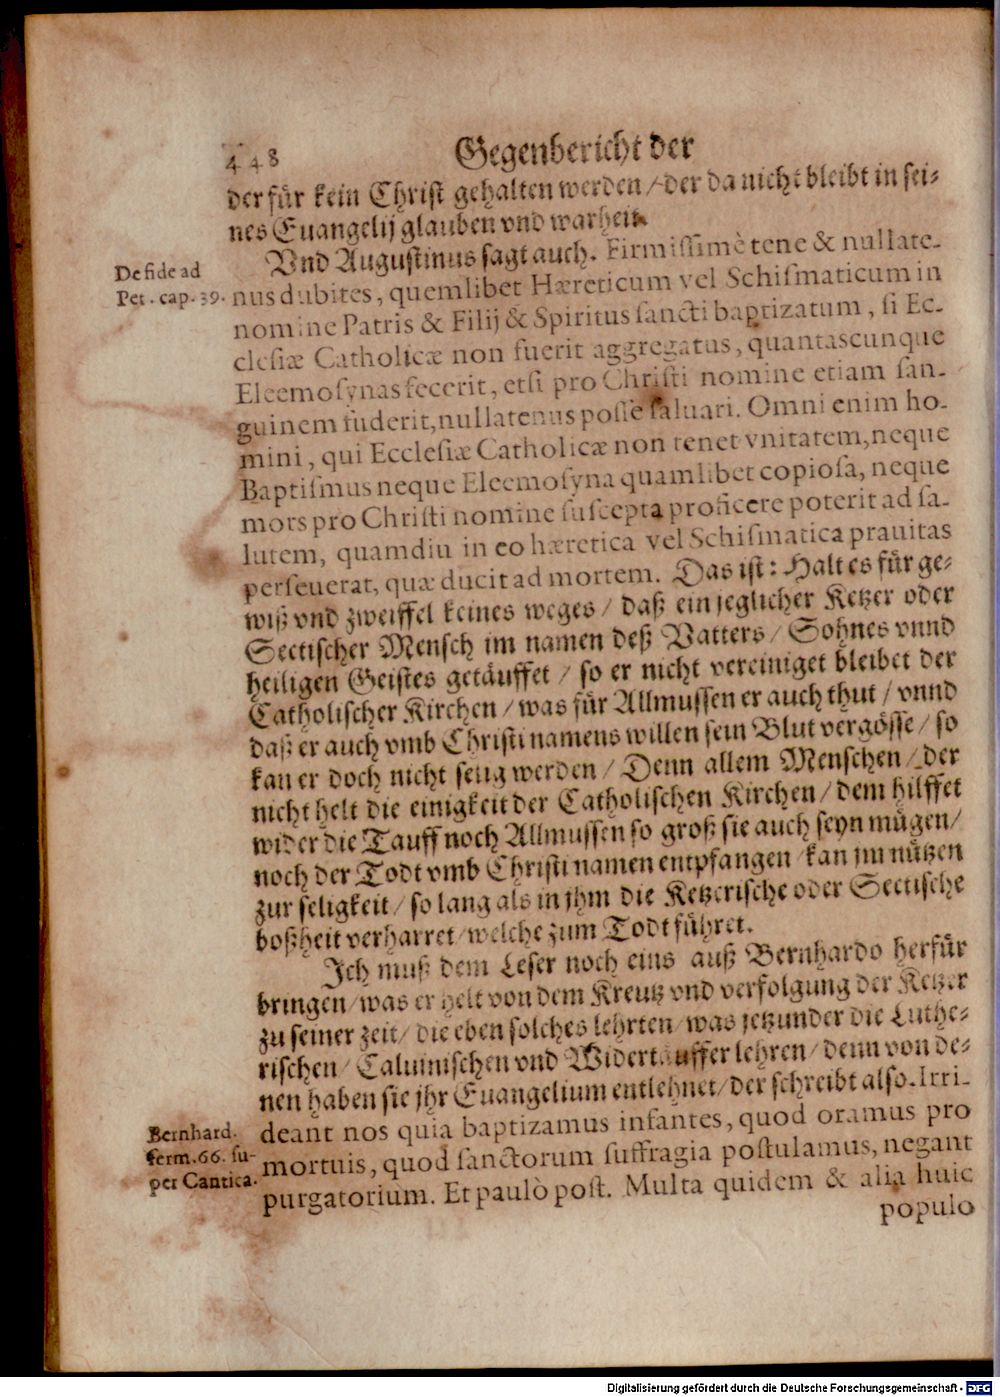 448 Gegenbericht der
der für kein Christ gehalten werden / der da nicht bleibt in sei-
nes Euangelij glauben vnd warheit.
Vnd Augustinus sagt auch. Firmissimè tene & nullate-
De fide ad
Pet. cap. 39.
nus dubites, quemlibet Hæreticum vel Schiſmaticum in
nomine Patris & Filij & Spiritus ſancti baptizatum, ſi Ec-
cleſiæ Catholicæ non fuerit aggregatus, quantascunque
Eleemoſynas fecerit, etſi pro Chriſti nomine etiam ſan-
guinem fuderit, nullatenus poſſe ſaluari. Omni enim ho-
mini, qui Eccleſiæ Catholicæ non tenet vnitatem, neque
Baptiſmus neque Eleemoſyna quamlibet copioſa, neque
mors pro Chriſti nomine ſuſcepta proficere poterit ad ſa-
lutem, quamdiu in eo hæretica vel Schiſmatica prauitas
perſeuerat, quæ ducit ad mortem. Das ist: Halt es für ge-
wiß vnd zweiffel keines weges / daß ein jeglicher Ketzer oder
Sectischer Mensch im namen deß Vatters / Sohnes vnnd
heiligen Geistes getäuffet / so er nicht vereiniget bleibet der
Catholischer Kirchen / was für Allmussen er auch thut / vnnd
daß er auch vmb Christi namens willen sein Blut vergösse / so
kan er doch nicht selig werden / Denn allem Menschen / der
nicht helt die einigkeit der Catholischen Kirchen / dem hilffet
wider die Tauff noch Allmussen so groß sie auch seyn mügen /
noch der Todt vmb Christi namen entpfangen / kan jm nützen
zur seligkeit / so lang als in jhm die Ketzerische oder Sectische
boßheit verharret / welche zum Todt führet.
Ich muß dem Leser noch eins auß Bernhardo herfür
bringen / was er helt von dem Kreutz vnd verfolgung der Ketzer
zu seiner zeit / die eben solches lehrten / was jetzunder die Luthe-
rischen / Caluinischen vnd Widertäuffer lehren / denn von de-
nen haben sie jhr Euangelium entlehnet / der schreibt also. Irri-
Bernhard.
ſerm. 66. ſu-
per Cantica.
deant nos quia baptizamus infantes, quod oramus pro
mortuis, quod ſanctorum ſuffragia poſtulamus, negant
purgatorium. Et paulò poſt. Multa quidem & alia huic
populo
Digitalisierung gefördert durch die Deutsche Forschungsgemeinschaft - DFG